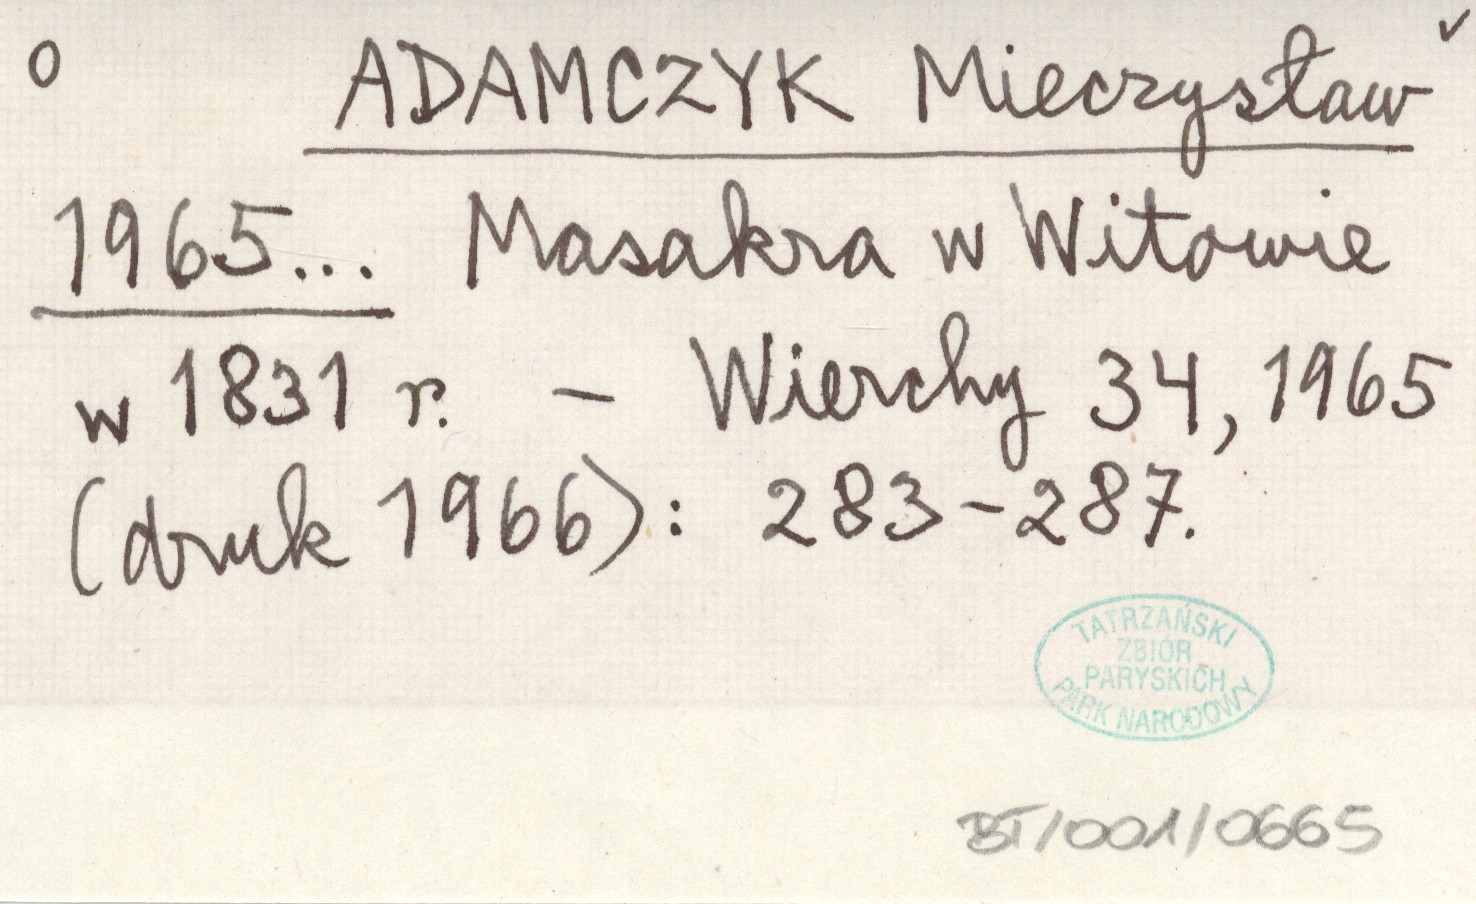 O ADAMCZYK Mieczysław ✓
1965... Masakra w Witowie
w 1831 r. – Wierchy 34, 1965
(druk 1966): 283–287.
TATRZAŃSKI
ZBIÓR
PARYSKICH
PARK NARODOWY
BT/001/0665